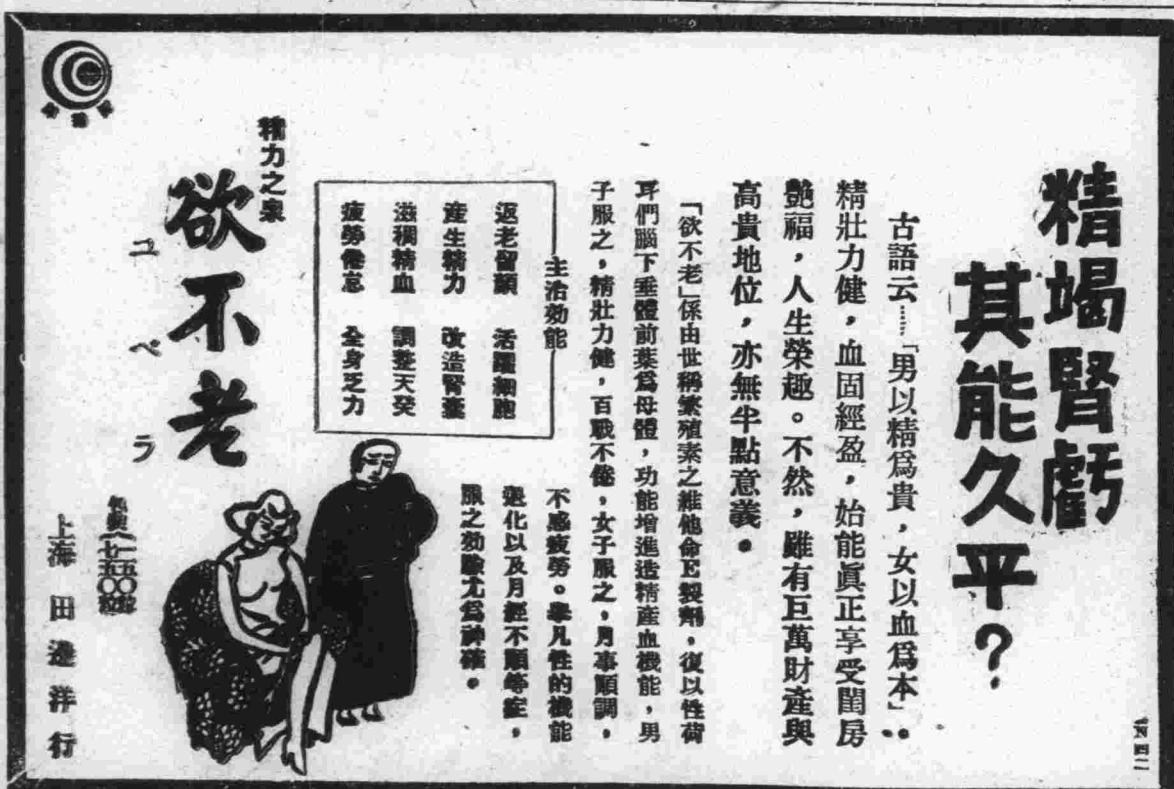 精竭腎虧
其能久乎?
古語云……「男以精爲貴,女以血爲本」..
精壯力健,血固經盈,始能眞正享受閨房
艷福,人生榮趣。不然,雖有巨萬財產與
高貴地位,亦無半點意義。
「欲不老」係由世稱繁殖素之維他命E製劑,復以性荷
耳們腦下垂體前葉爲母體,功能增進造精產血機能,男
子服之,精壯力健,百戰不倦,女子服之,月事順調,
不感疲勞。舉凡性的機能
退化以及月經不順等症,
服之効驗尤爲神確。
主治効能
返老留顏 活躍細胞
產生精力 改造腎臟
滋稠精血 調整天癸
疲勞倦怠 全身乏力
精力之泉
欲不老
ユベラ
上海 田邊洋行